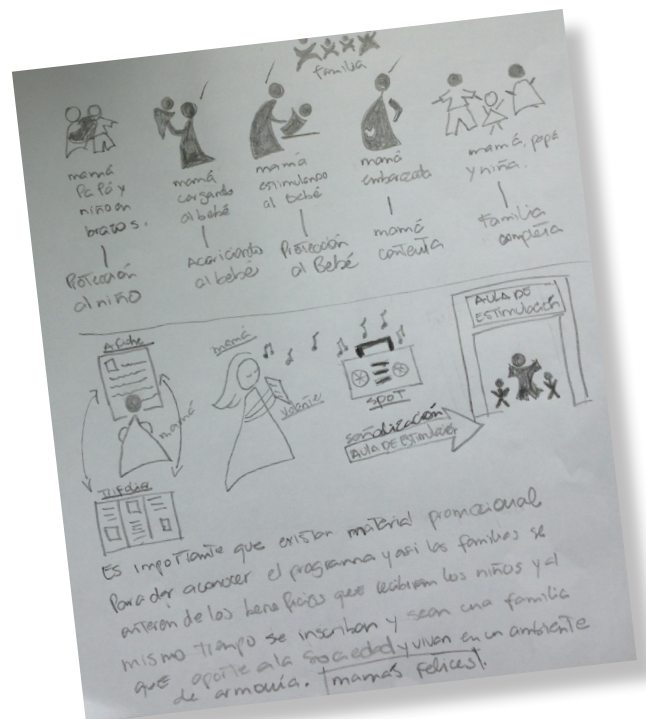 familia
mamá
Papá y
niño en
brazos.
Protección
al niño
mamá
cargando
al bebé
Acariciando
al bebé
mamá
estimulando
al bebé
Protección
al Bebé
mamá
embarazada
mamá
contenta
mamá, papá
y niña.
familia
completa
Afiche
mamá
Trifoliar
mamá
volante
SPOT
señalización
AULA DE Estimulación
AULA DE
ESTIMULACIÓN
Es importante que existan material promocional
Para dar a conocer el programa y asi las familias se
enteren de los beneficios que recibiran los niños y al
mismo tiempo se inscriban y sean una familia
que aporte a la sociedad y vivan en un ambiente
de armonía. ¡mamás felices!.